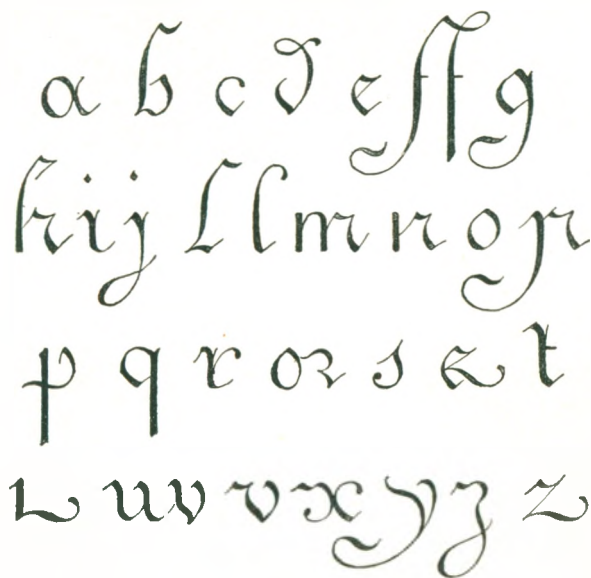 a b c d e f f g
h i j l l m n o p
p q r o r s & t
L u v v x y z z